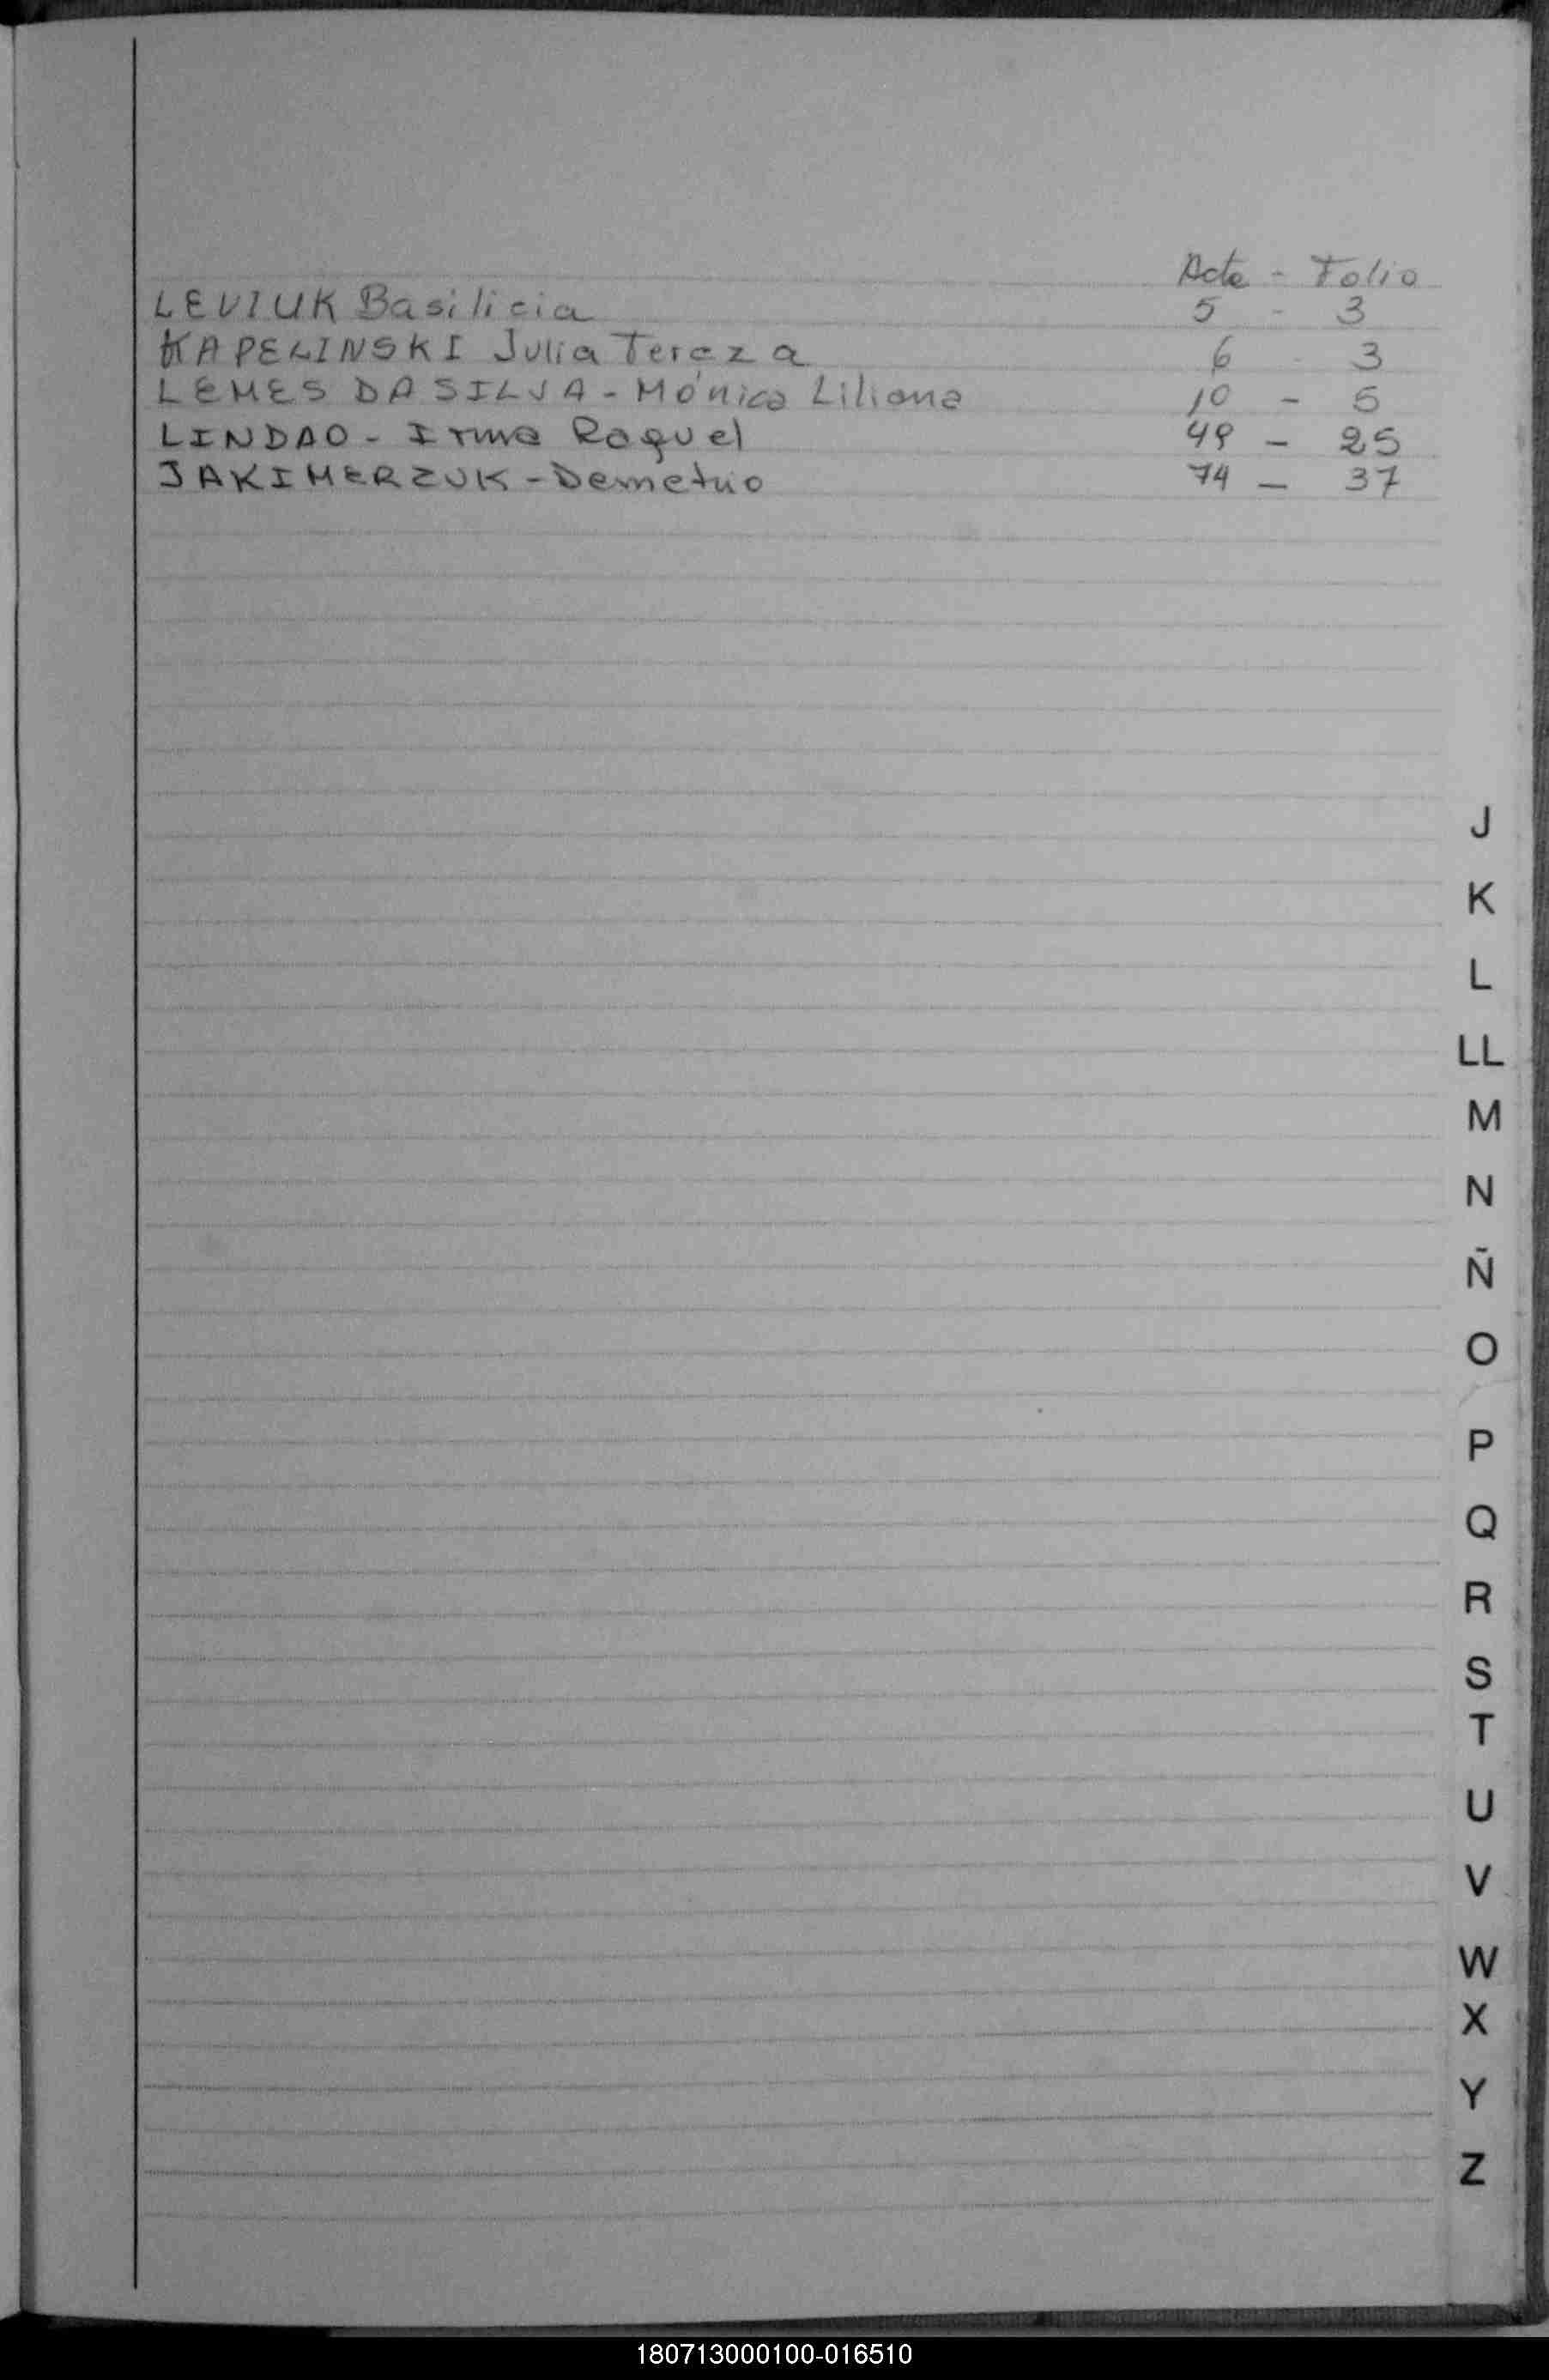 Acta - Folio
LEVIUK Basilicia 5 - 3
KAPELINSKI Julia Tereza 6 - 3
LEMES DA SILVA - Mónica Liliana 10 - 5
LINDAO - Irma Raquel 49 - 25
JAKIMERZUK - Demetrio 74 - 37
J
K
L
LL
M
N
Ñ
O
P
Q
R
S
T
U
V
W
X
Y
Z
180713000100-016510